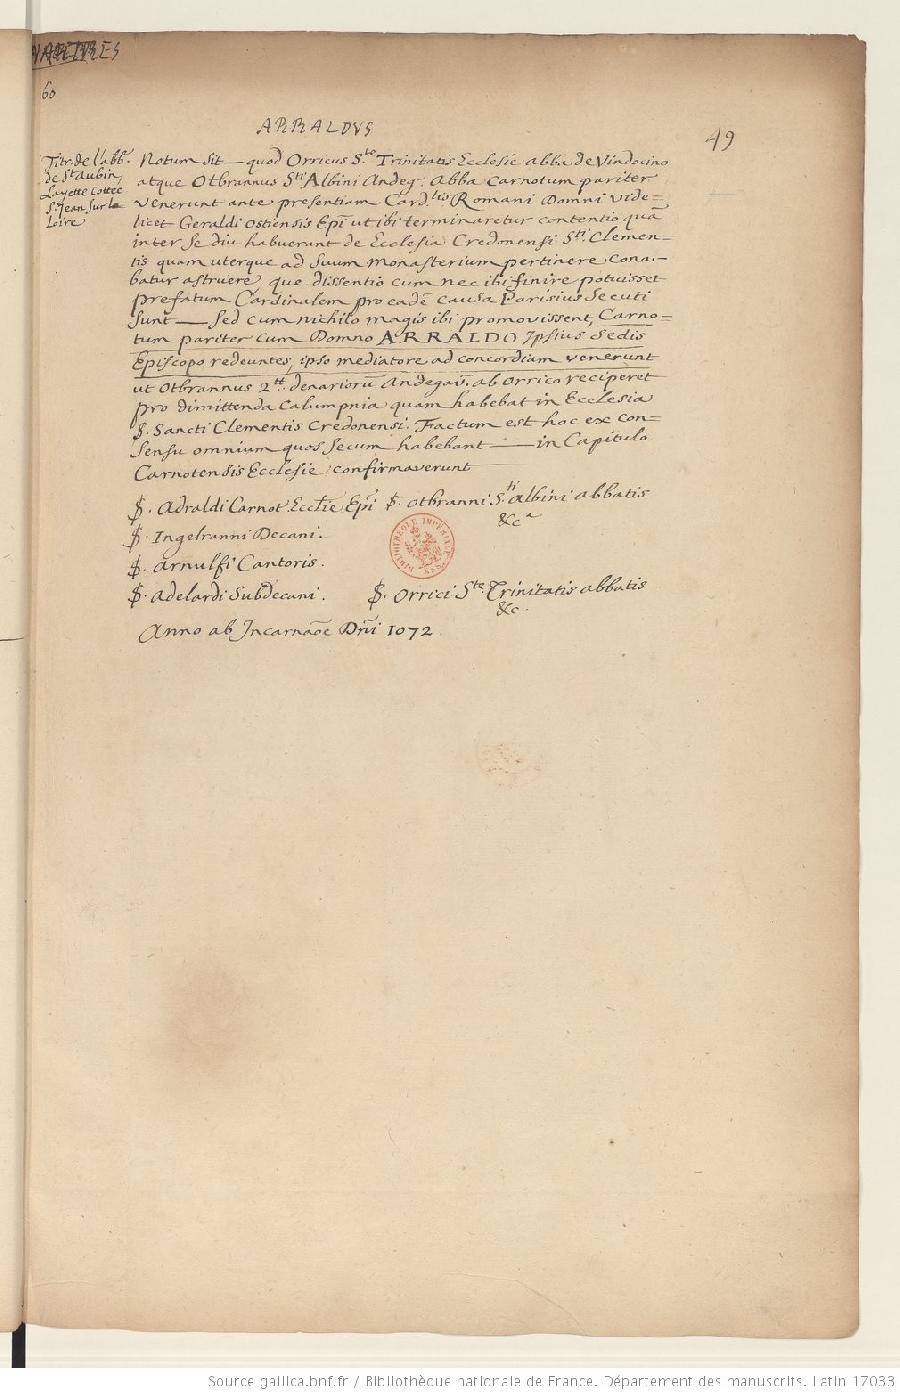 60
ARRALDVS
49
Titr. de l'abb.
de St Aubin,
Layette cottée
St Jean sur le
Loire
Notum sit — quod Orricus S.te Trinitatis Ecclesie abba de Vindocino
atque Otbrannus S.ti Albini Andeg. abba Carnotum pariter
venerunt ante presentiam Card.lis Romani Domni vide=
licet Geraldi Ostiensis Epi ut ibi terminaretur contentio qua
inter se diu habuerunt de Ecclesia Credonensi S.ti Clemen-
tis quam uterque ad suum monasterium pertinere cona-
batur astruere, que dissentio cum nec ibi finire potuisset
prefatum Cardinalem pro eadē causa Parisius secuti
sunt — Sed cum nichilo magis ibi promovissent, Carno=
tum pariter cum Domno ARRALDO Ipsius Sedis
Episcopo redeuntes, ipso mediatore ad concordiam venerunt
ut Otbrannus 2 tt. denariorū andegav. ab orrico reciperet
pro dimittenda calumpnia quam habebat in Ecclesia
S. Sancti Clementis Credonensi. Factum est hoc ex con=
sensu omnium quos secum habebant — in Capitulo
Carnotensis Ecclesie confirmaverunt
S. Adraldi Carnot. Ecclie Epi S. Otbranni S.ti Albini abbatis
&ca
S. Ingelranni Decani.
S. Arnulfi Cantoris.
S. Adelardi Subdecani. S. Orrici S.te Trinitatis abbatis
&c.
Anno ab Incarnaōe Dn̄i 1072
BIBLIOTHEQUE IMPERIALE MSS.
Source gallica.bnf.fr / Bibliothèque nationale de France. Département des manuscrits. Latin 17033